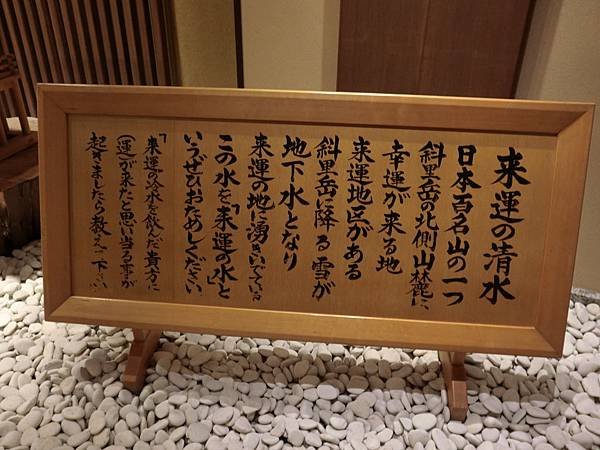 来運の清水
日本百名山の一つ
斜里岳の北側山麓に、
幸運が来る地
来運地区がある
斜里岳に降る雪が
地下水となり
来運の地に湧きいでている
この水を「来運の水」と
いうぜひおためしください。
「来運の冷水を飲んだ貴方に
(運)が来たと思い当る事が
起きましたら教えて下さい」